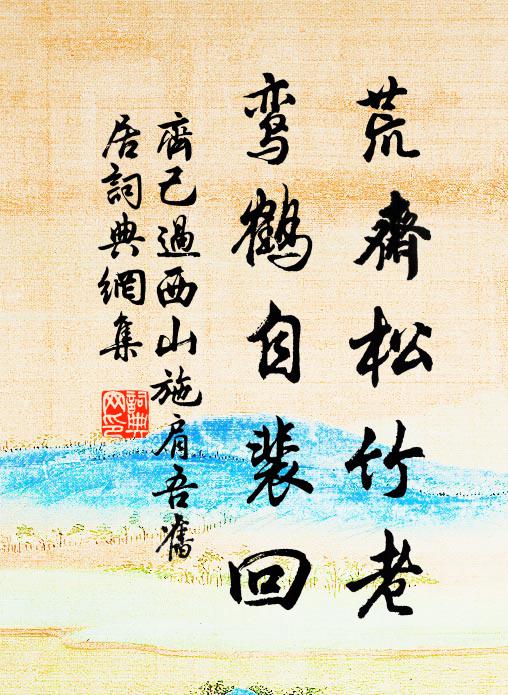 荒齋松竹老
鸾鶴自裴回
齊己過西山施肩吾舊
居詞典網集
詞典
网印